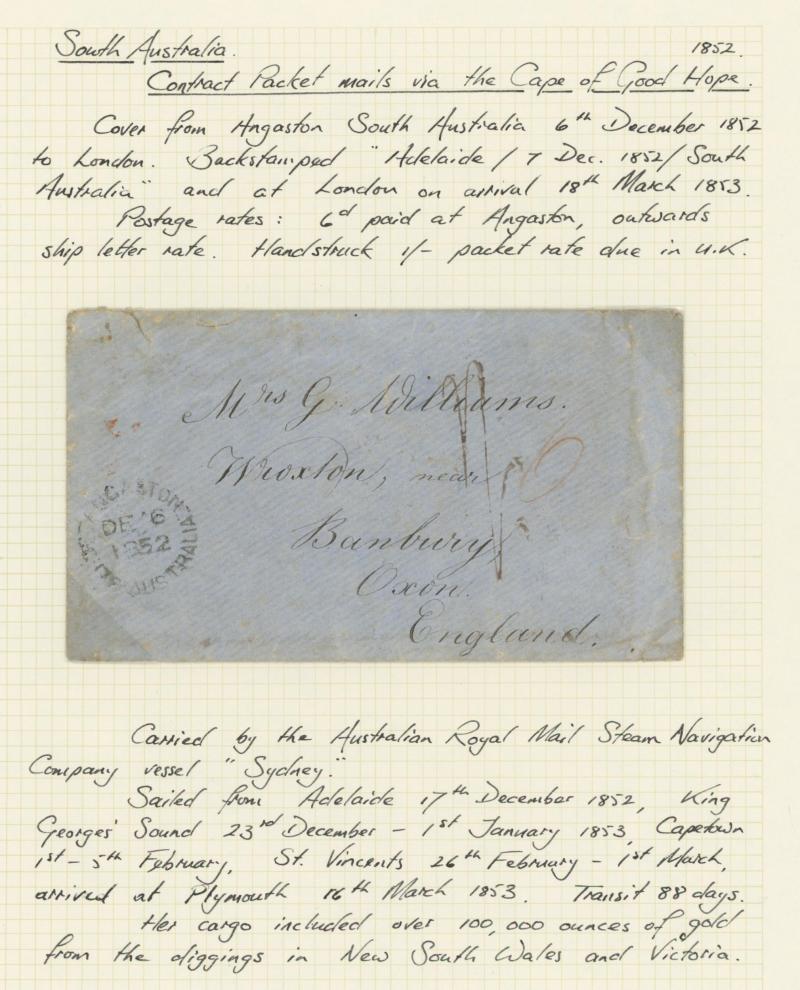 South Australia. 1852.
Contract Packet mails via the Cape of Good Hope.
Cover from Angaston South Australia 6th December 1852
to London. Backstamped "Adelaide / 7 Dec. 1852 / South
Australia" and at London on arrival 18th March 1853.
Postage rates: 6d paid at Angaston, outwards
ship letter rate. Handstruck 1/- packet rate due in U.K.
Mrs G. Williams.
Wroxton, near
Banbury
Oxon.
England.
6
ANGASTON
DE 6
1852
AUSTRALIA
Carried by the Australian Royal Mail Steam Navigation
Company vessel "Sydney."
Sailed from Adelaide 17th December 1852, King
Georges' Sound 23rd December - 1st January 1853, Capetown
1st - 5th February, St. Vincents 26th February - 1st March,
arrived at Plymouth 16th March 1853. Transit 88 days.
Her cargo included over 100,000 ounces of gold
from the diggings in New South Wales and Victoria.